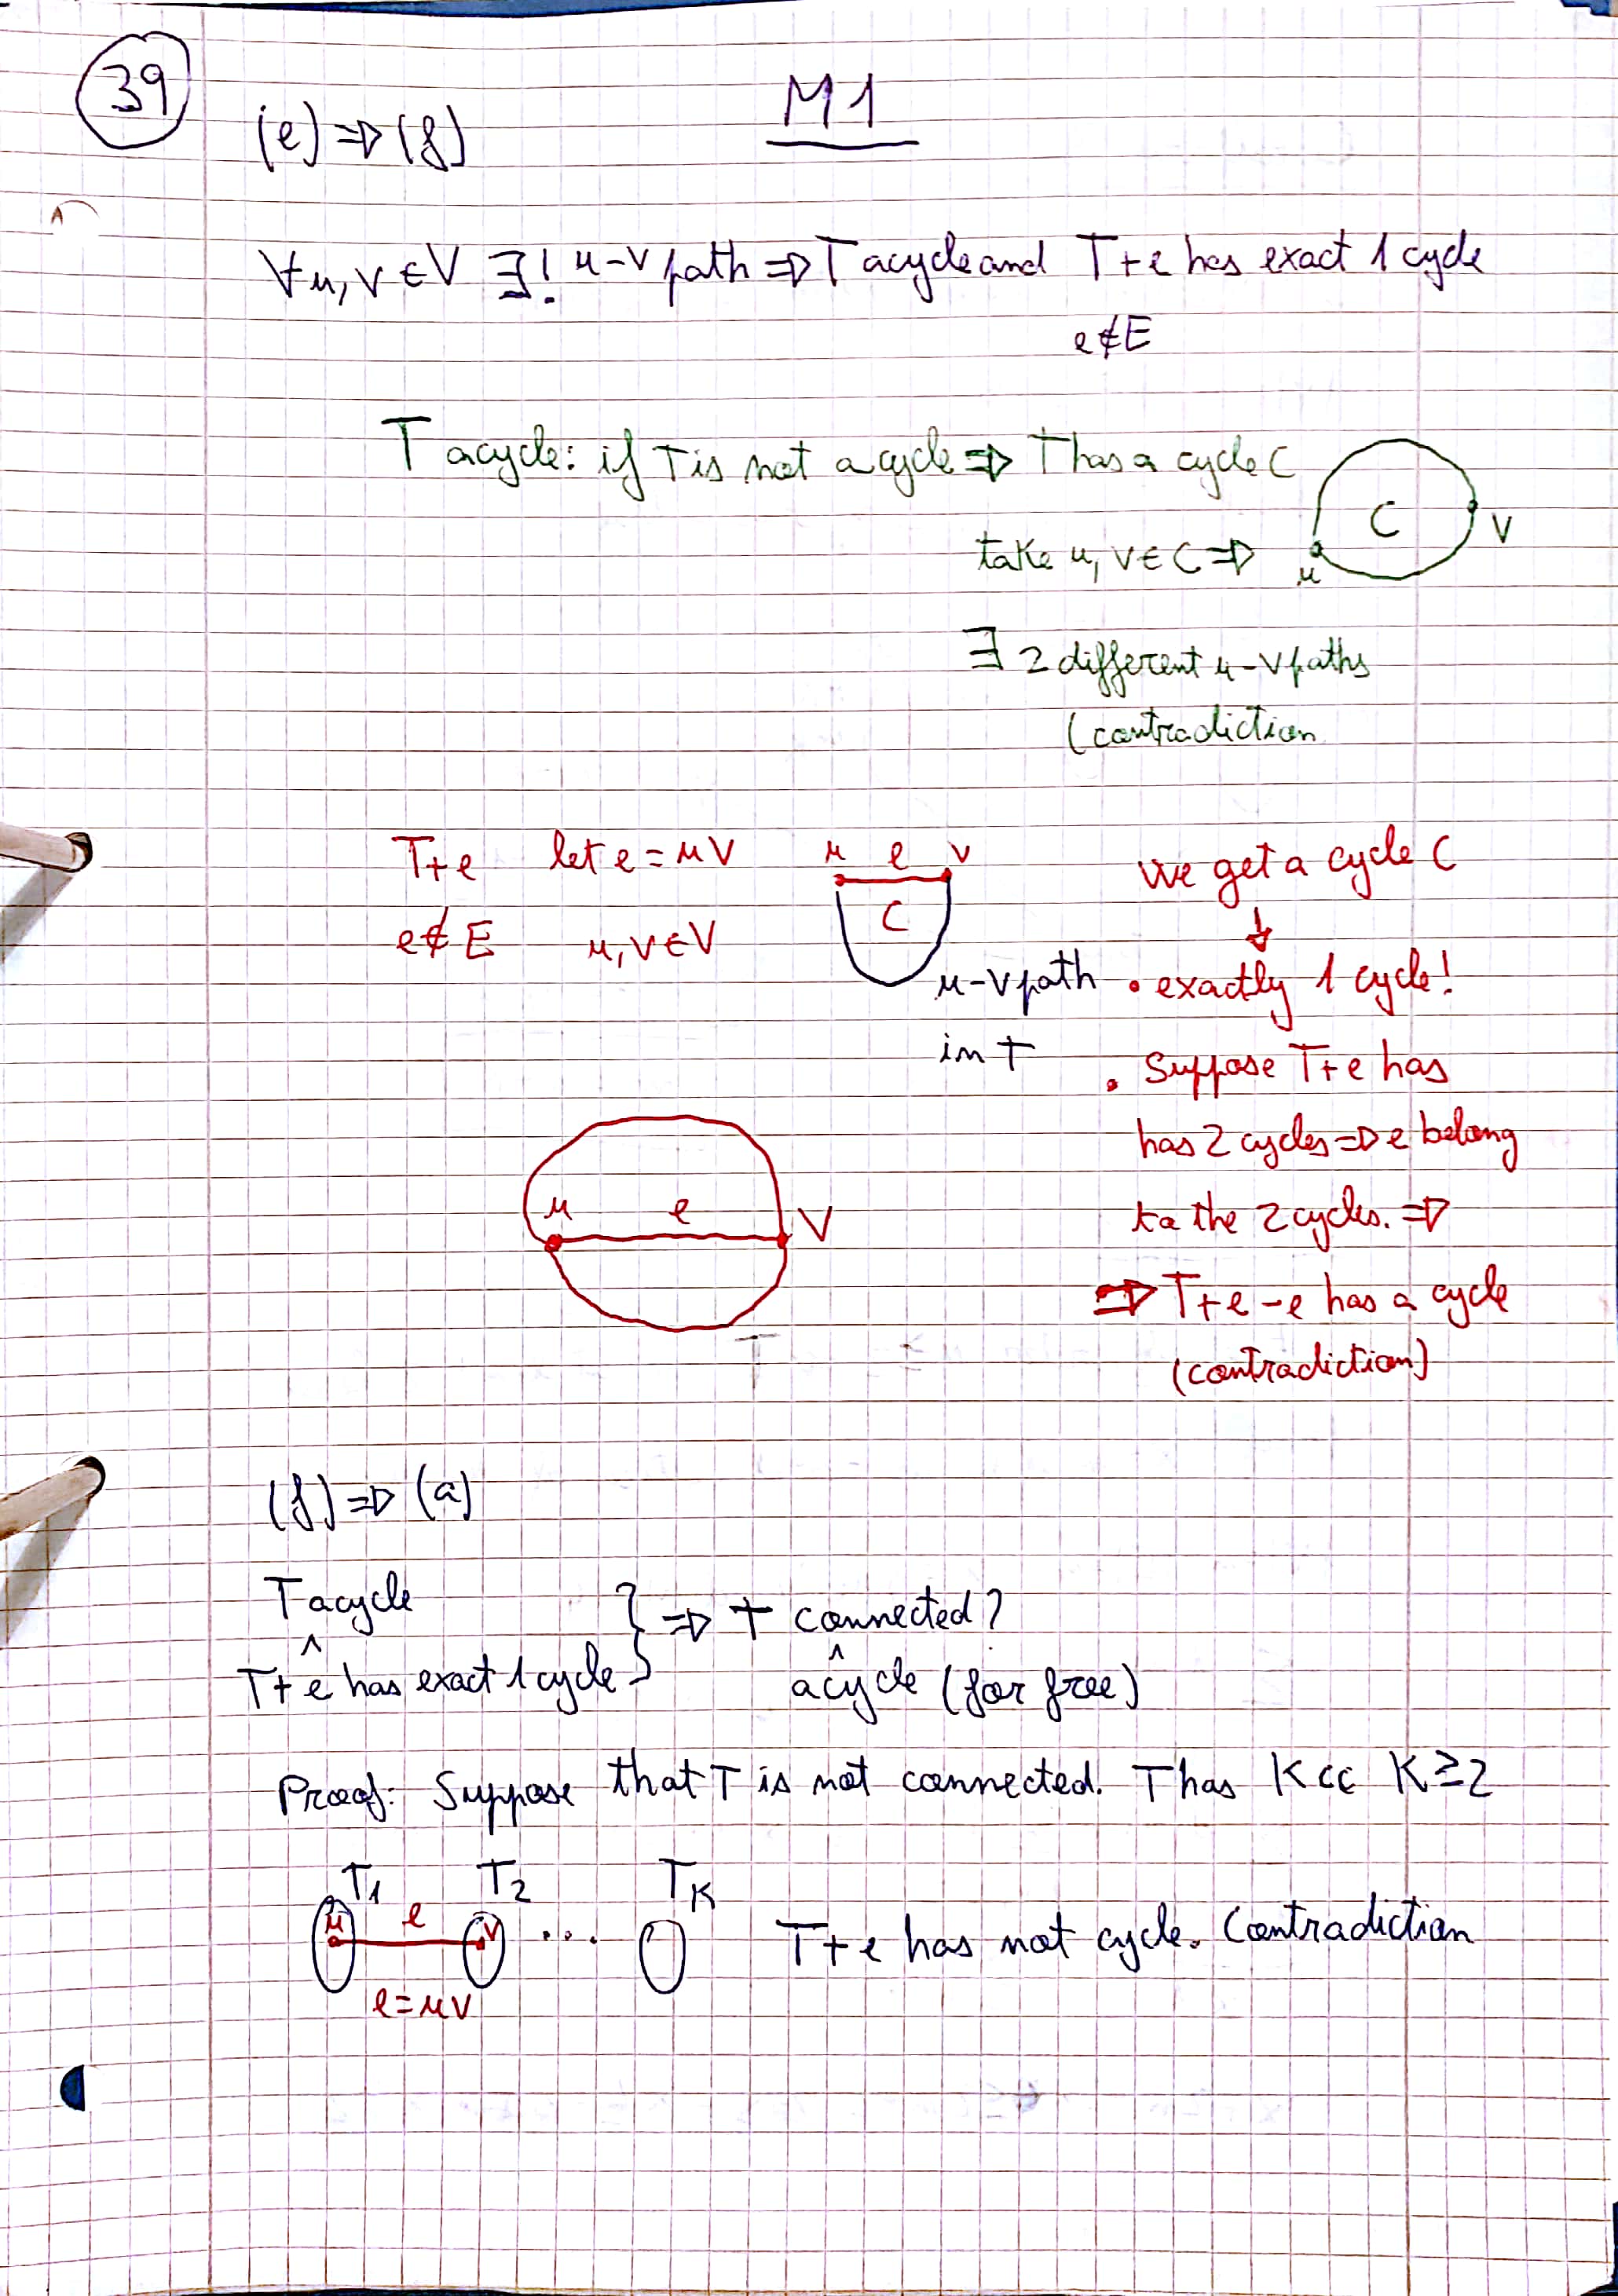 39
M1
(e) ⇒ (f)
∀u, v ∈ V ∃! u-v path ⇒ T acycle and T+e has exact 1 cycle
e ∉ E
T acycle: if T is not acycle ⇒ T has a cycle C
C
v
u
take u, v ∈ C ⇒
∃ 2 different u-v paths
(contradiction
T+e let e = uv
u e v
We get a cycle C
↓
e ∉ E u, v ∈ V
C
u-v path
in T
• exactly 1 cycle!
• Suppose T+e has
has 2 cycles ⇒ e belong
to the 2 cycles. ⇒
u e v
⇒ T+e-e has a cycle
(contradiction)
(f) ⇒ (a)
T acycle
∧
T+e has exact 1 cycle
} ⇒ T connected?
∧
acycle (for free)
Proof: Suppose that T is not connected. T has K cc K ≥ 2
T1 T2 TK
u e v ...
T+e has not cycle. Contradiction
e = uv